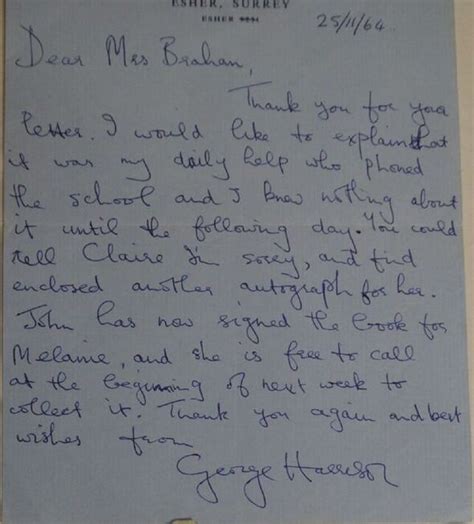 ESHER, SURREY
ESHER
25/11/64
Dear Mrs Brahan,
Thank you for your
letter. I would like to explain that
it was my daily help who phoned
the school and I knew nothing about
it until the following day. You could
tell Claire I'm sorry, and find
enclosed another autograph for her.
John has now signed the book for
Melanie, and she is free to call
at the beginning of next week to
collect it. Thank you again and best
wishes from
George Harrison